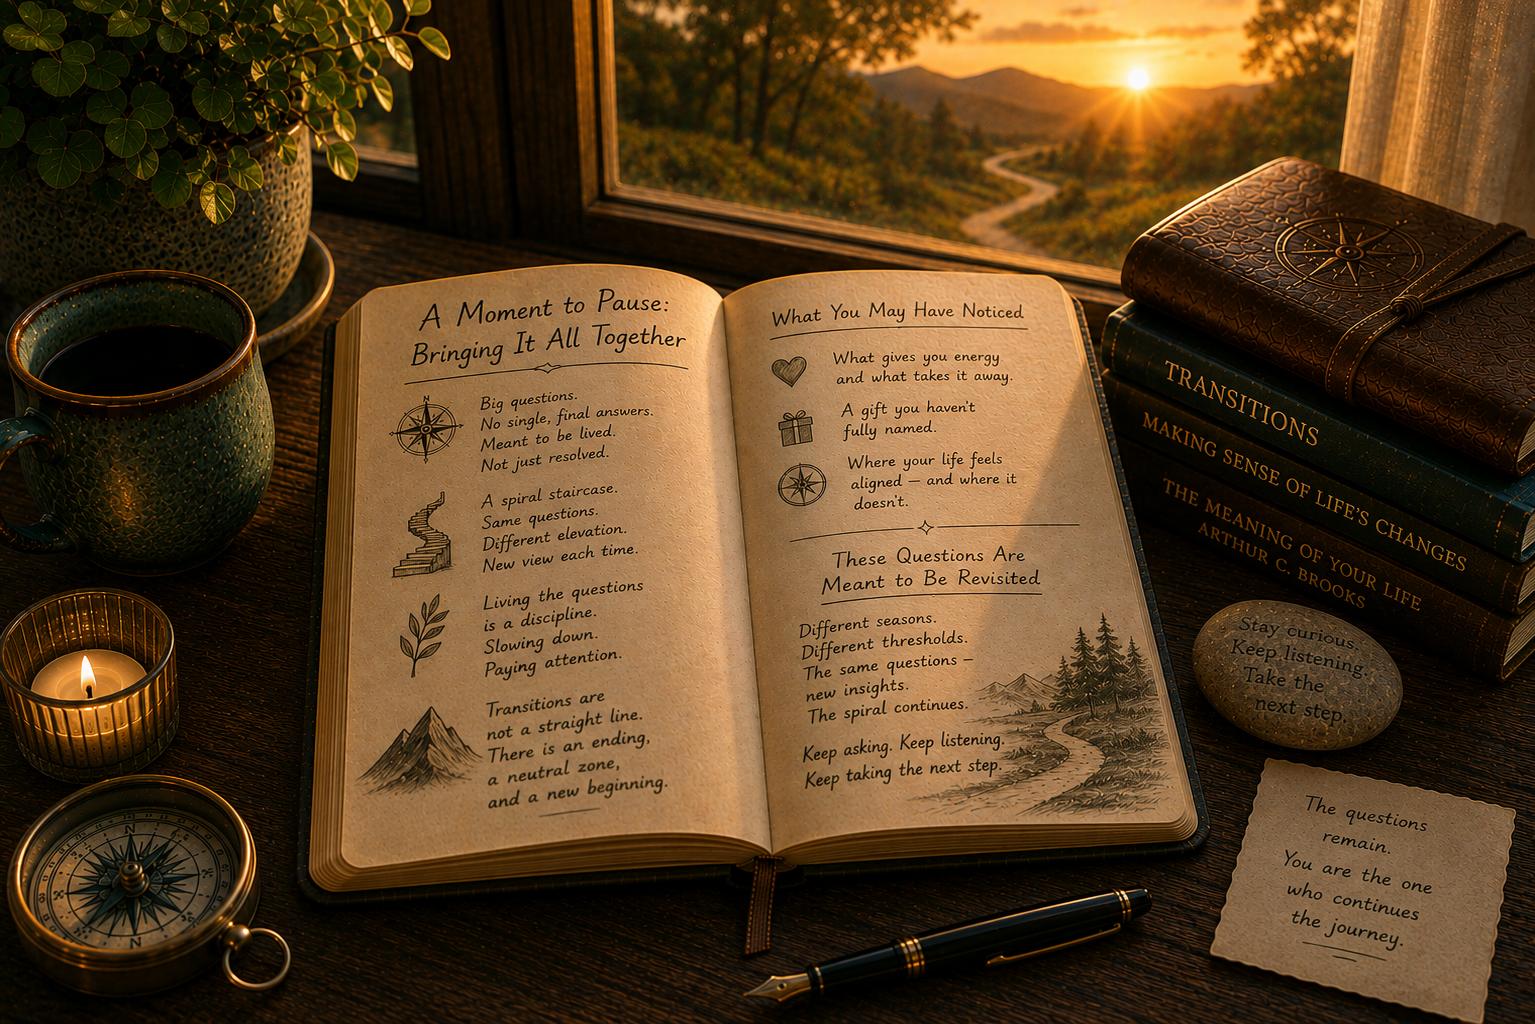 A Moment to Pause:
Bringing It All Together
N
Big questions.
No single, final answers.
Meant to be lived.
Not just resolved.
A spiral staircase.
Same questions.
Different elevation.
New view each time.
Living the questions
is a discipline.
Slowing down.
Paying attention.
Transitions are
not a straight line.
There is an ending,
a neutral zone,
and a new beginning.
What You May Have Noticed
What gives you energy
and what takes it away.
A gift you haven't
fully named.
Where your life feels
aligned — and where it
doesn't.
These Questions Are
Meant to Be Revisited
Different seasons.
Different thresholds.
The same questions —
new insights.
The spiral continues.
Keep asking. Keep listening.
Keep taking the next step.
TRANSITIONS
MAKING SENSE OF LIFE'S CHANGES
THE MEANING OF YOUR LIFE
ARTHUR C. BROOKS
Stay curious.
Keep listening.
Take the
next step.
The questions
remain.
You are the one
who continues
the journey.
N